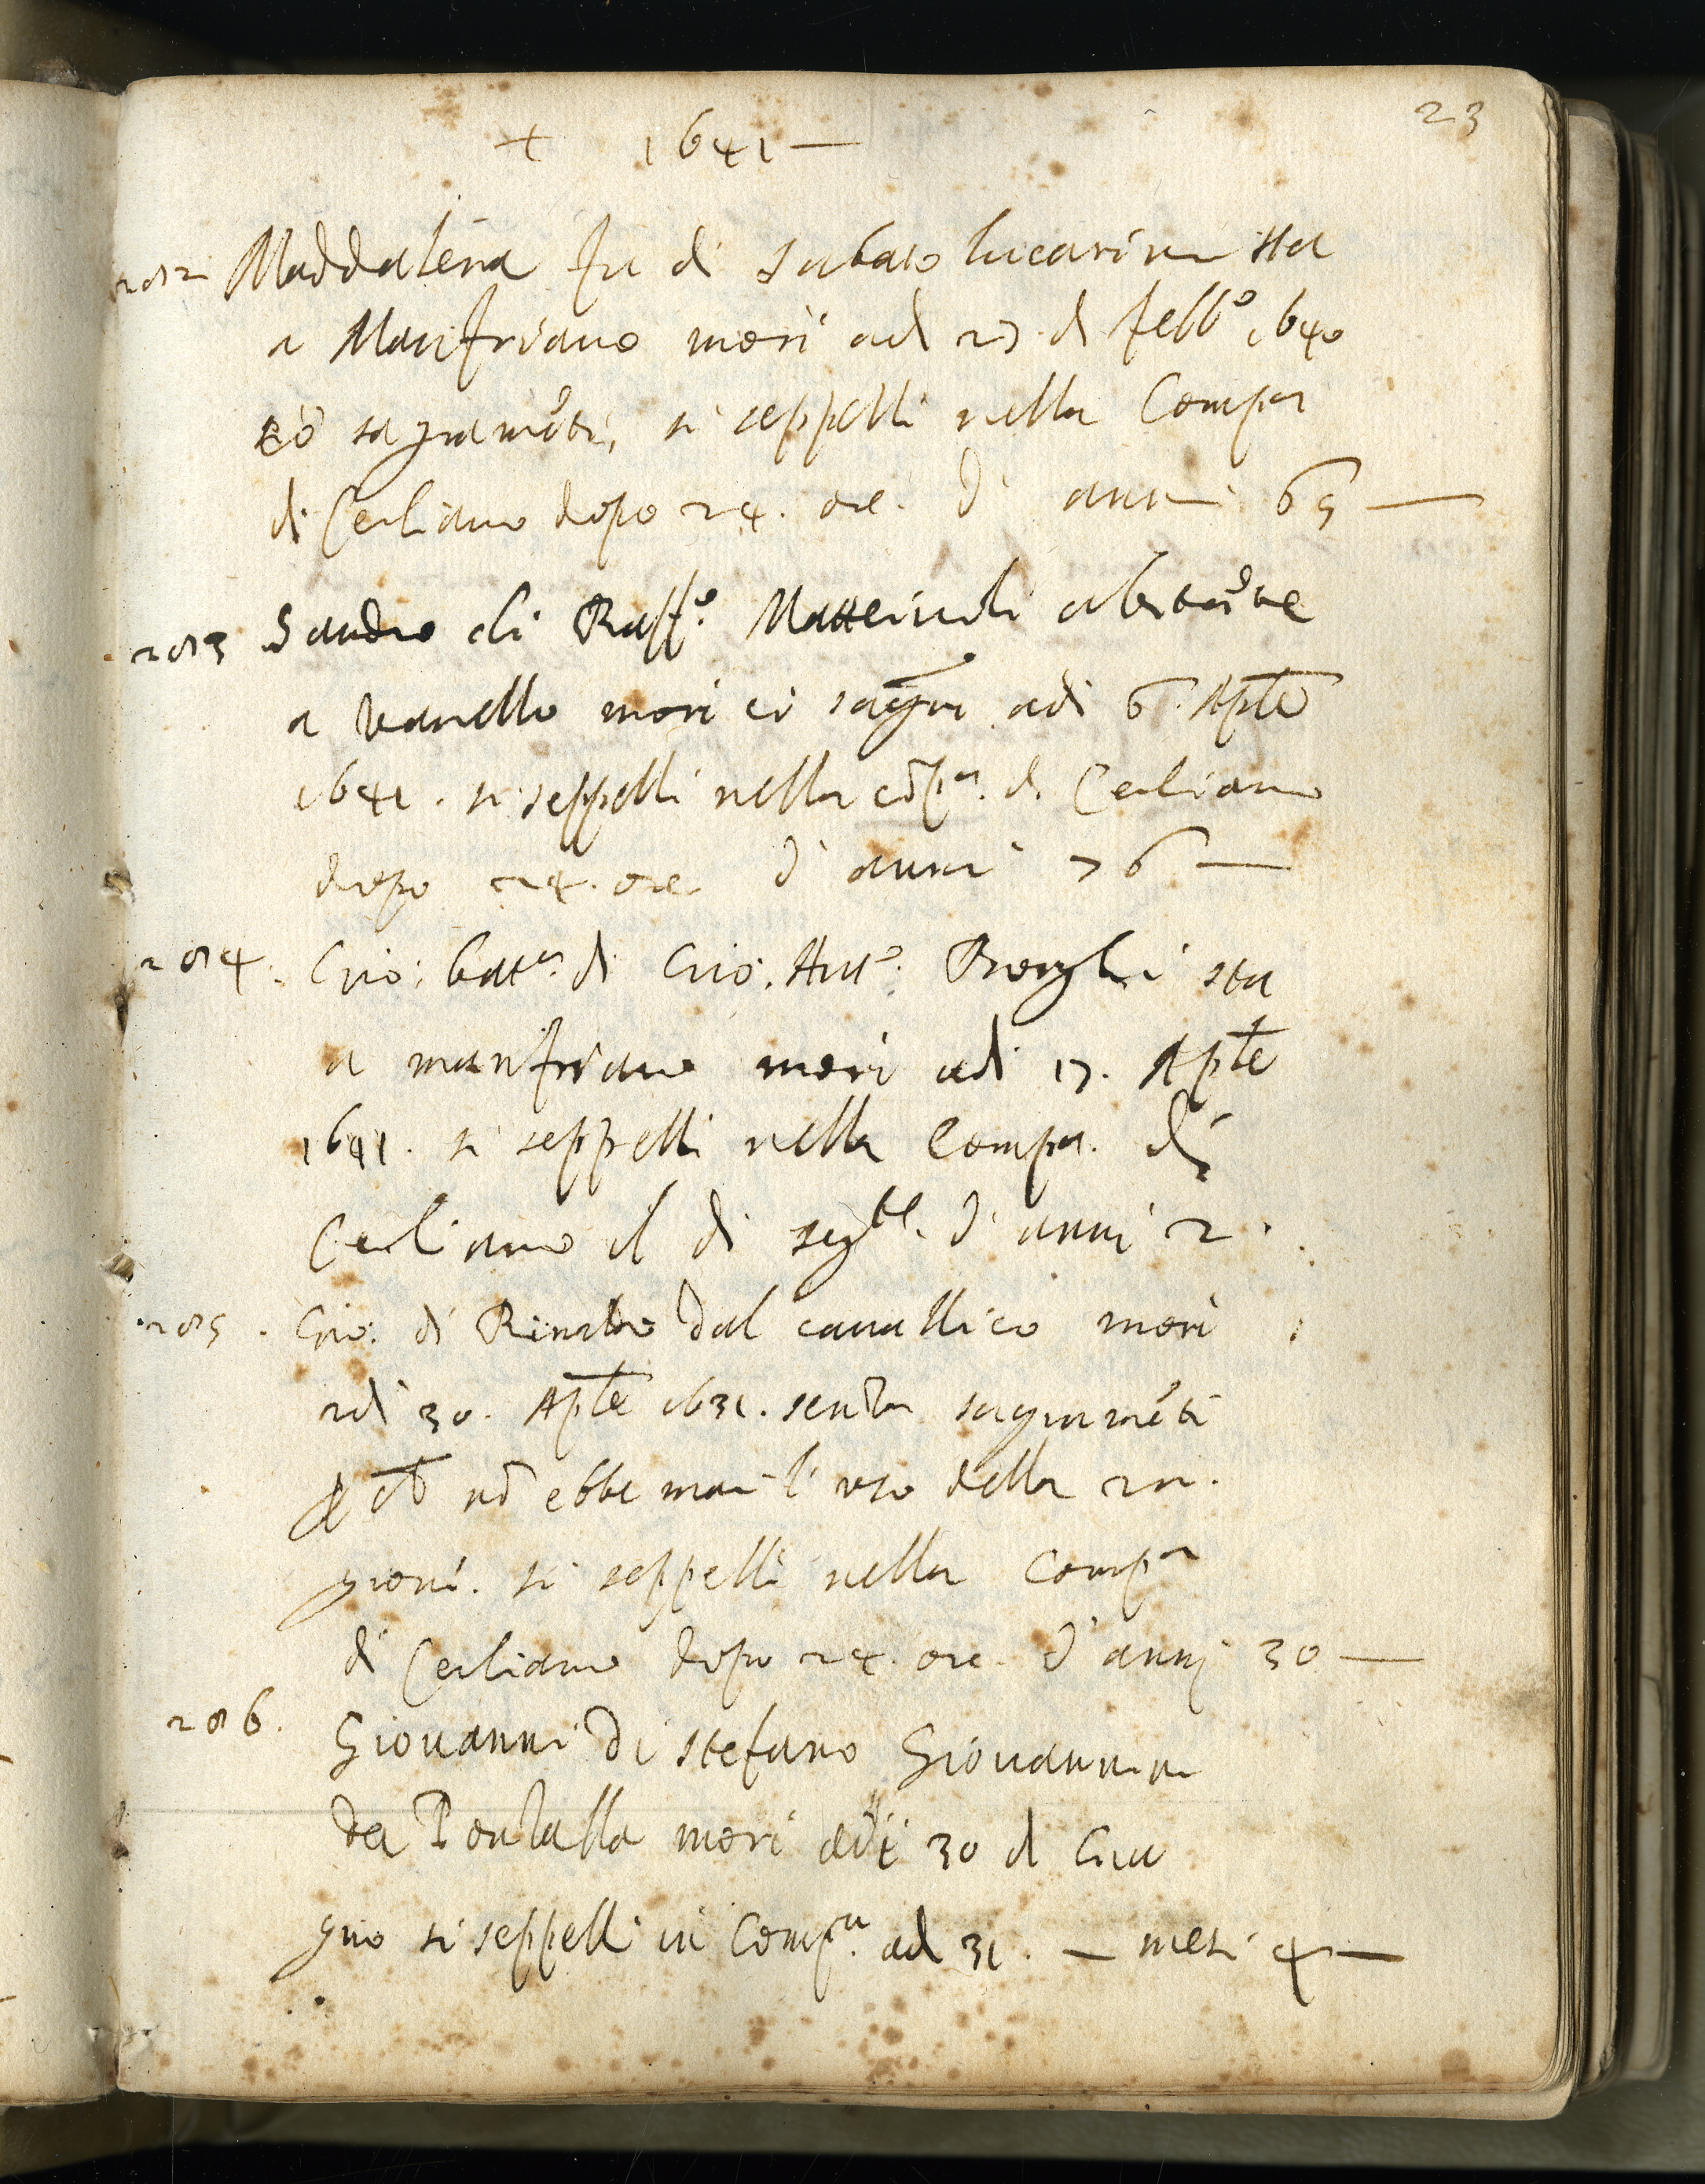 23
+ 1641 —
282 Maddalena fu di Sabato lucarini sta
a Manfriano morì adi 27. di febb.o 1640
cõ sagramẽti, si seppellì nella Compa
di Cerliano dopo 24. ore. d' anni 65 —
283 Sandro di Raff.o Matteinoli abitãte
a Vanello morì cõ sagra adi 6. Aple
1641. si seppellì nella cõp.a di Cerliano
dopo 24. ore d' anni 76 —
284. Gio: batt.a di Gio: Ant.o Borghi sta
a manfriano morì adi 17. Aple
1641. si seppellì nella Compa. di
Cerliano il di seg.te d' anni 2.
285. Gio: di Rinaldo dal cavallico morì
adi 30. Aple 1631. senza sagramẽti
nõ ebbe mai l' uso della ra.
gioni. si seppellì nella Comp.a
di Cerliano dopo 24. ore. d' anni 30 —
286. Giovanni di stefano Giovannini
da morì adi 30 di Giu
gno si seppellì in Comp.a adi 31. — mesi 4 —